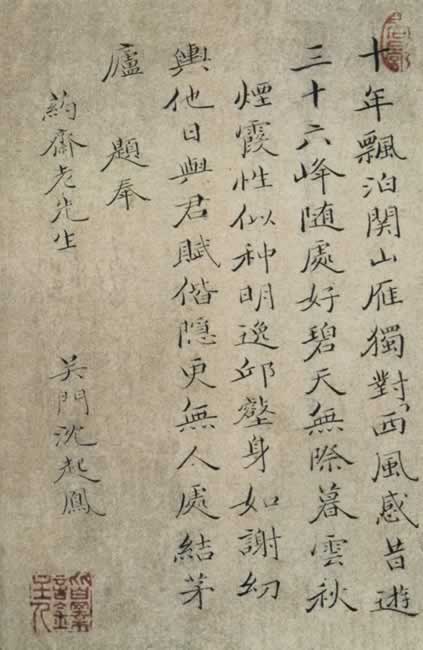 十年飄泊関山雁獨對西風感昔遊
三十六峰随處好碧天無際暮雲秋
煙霞性似种明逸邱壑身如謝幼
輿他日與君賦偕隱更無人處結茅
廬 題奉
葯齋老先生
吴門沈起鳳